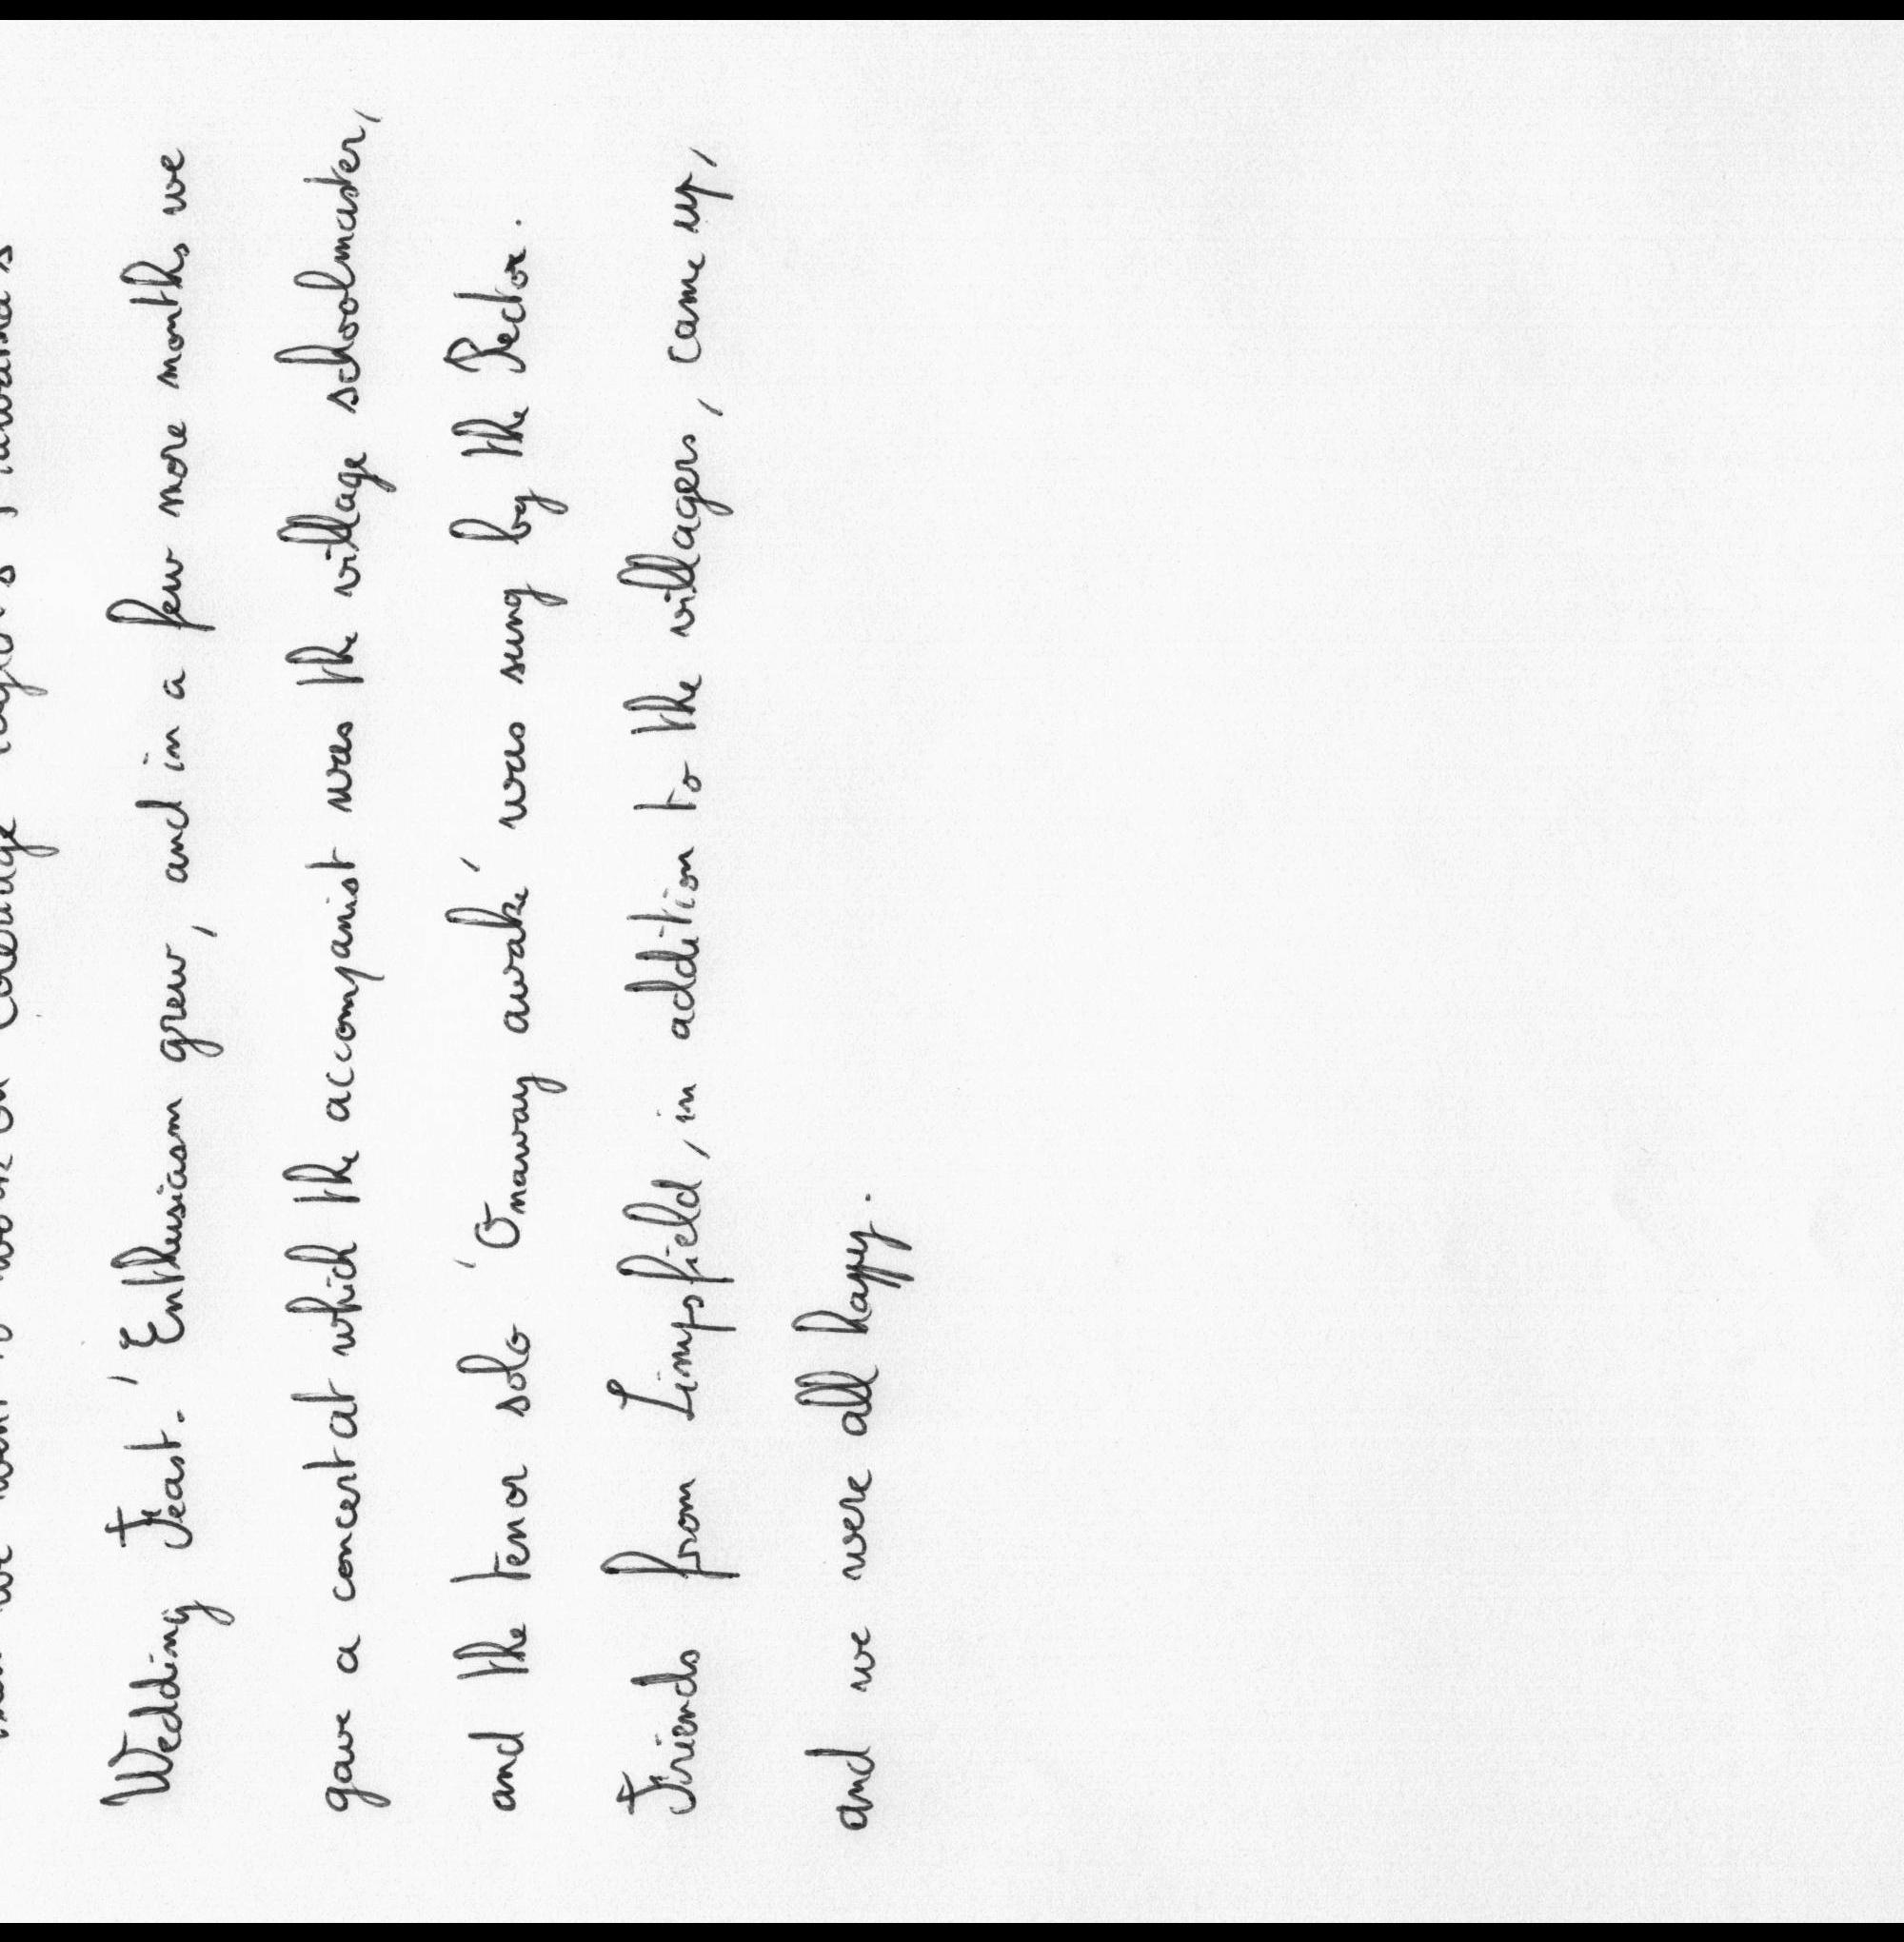 we went to work on Coleridge Taylor's 'Hiawatha's
Wedding Feast.' Enthusiasm grew, and in a few more months we
gave a concert at which the accompanist was the village schoolmaster,
and the tenor solo 'Onaway awake' was sung by the Rector.
Friends from Limpsfield, in addition to the villagers, came up,
and we were all happy.